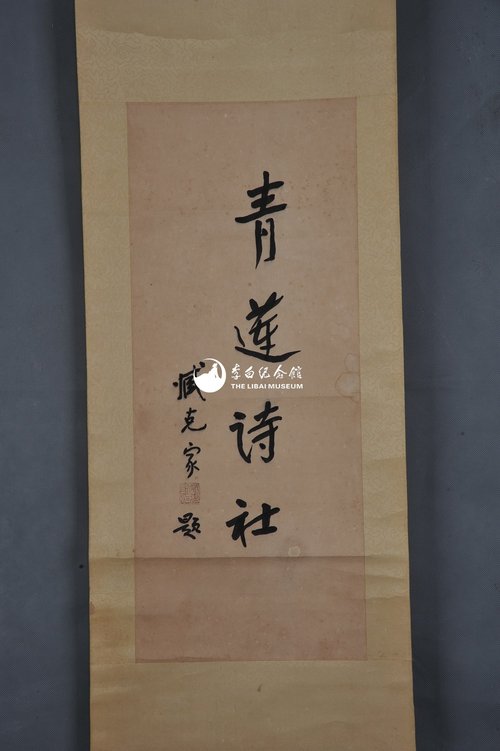 青莲诗社
臧克家题
李白纪念馆
THE LIBAI MUSEUM